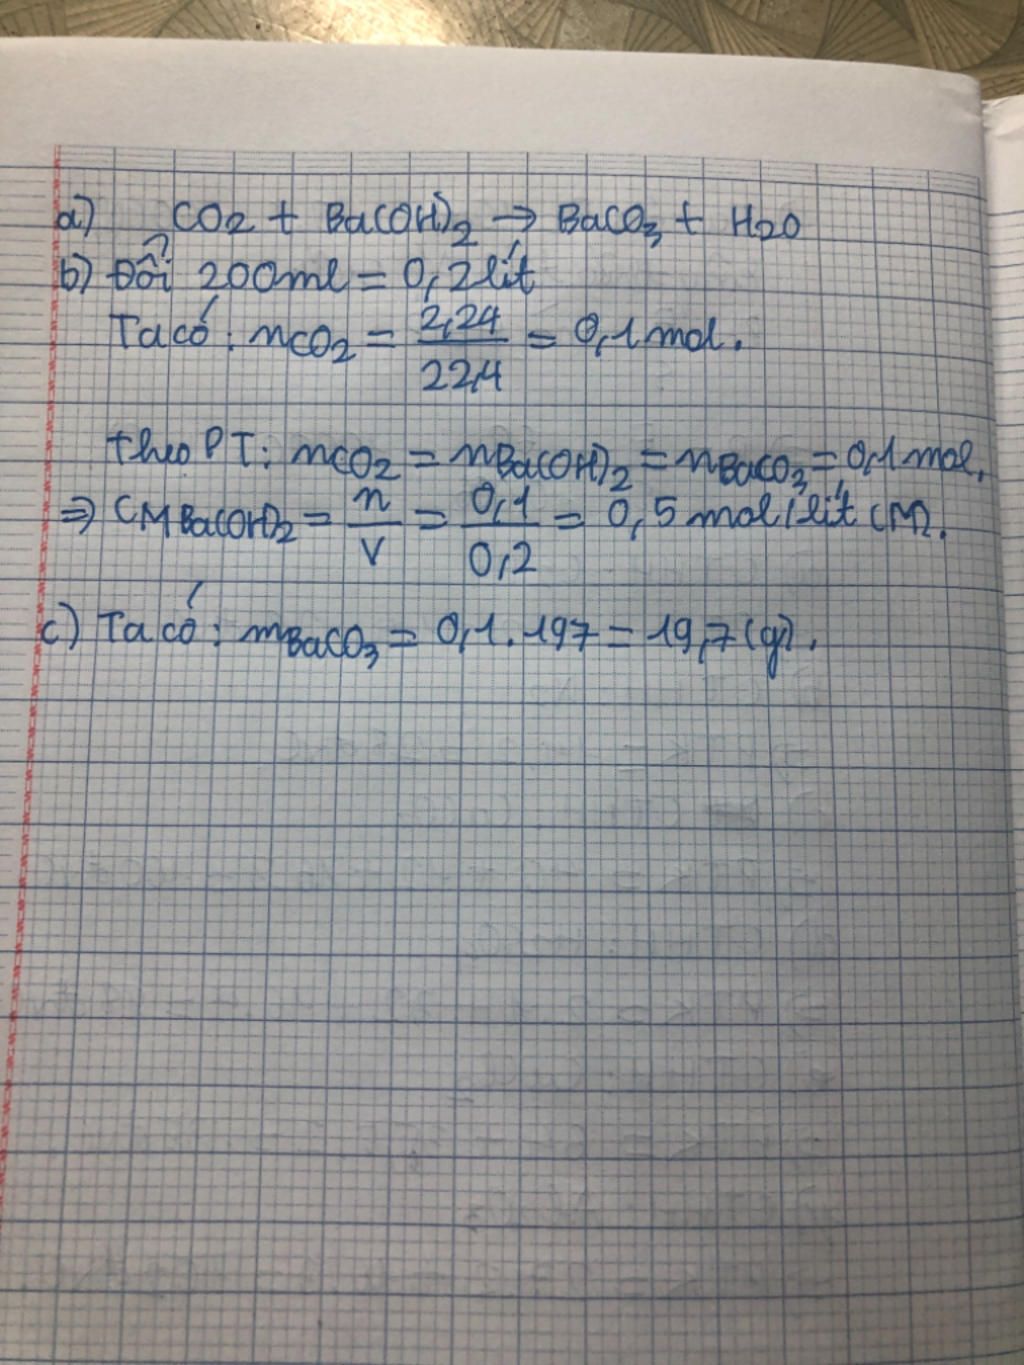 a) CO2 + Ba(OH)2 → BaCO3 + H2O
b) Đổi 200ml = 0,2 lít
Ta có: nCO2 = 2,24/22,4 = 0,1 mol.
theo PT: nCO2 = nBa(OH)2 = nBaCO3 = 0,1 mol.
⇒ CM Ba(OH)2 = n/V = 0,1/0,2 = 0,5 mol/lít (M).
c) Ta có: mBaCO3 = 0,1 . 197 = 19,7 (g).